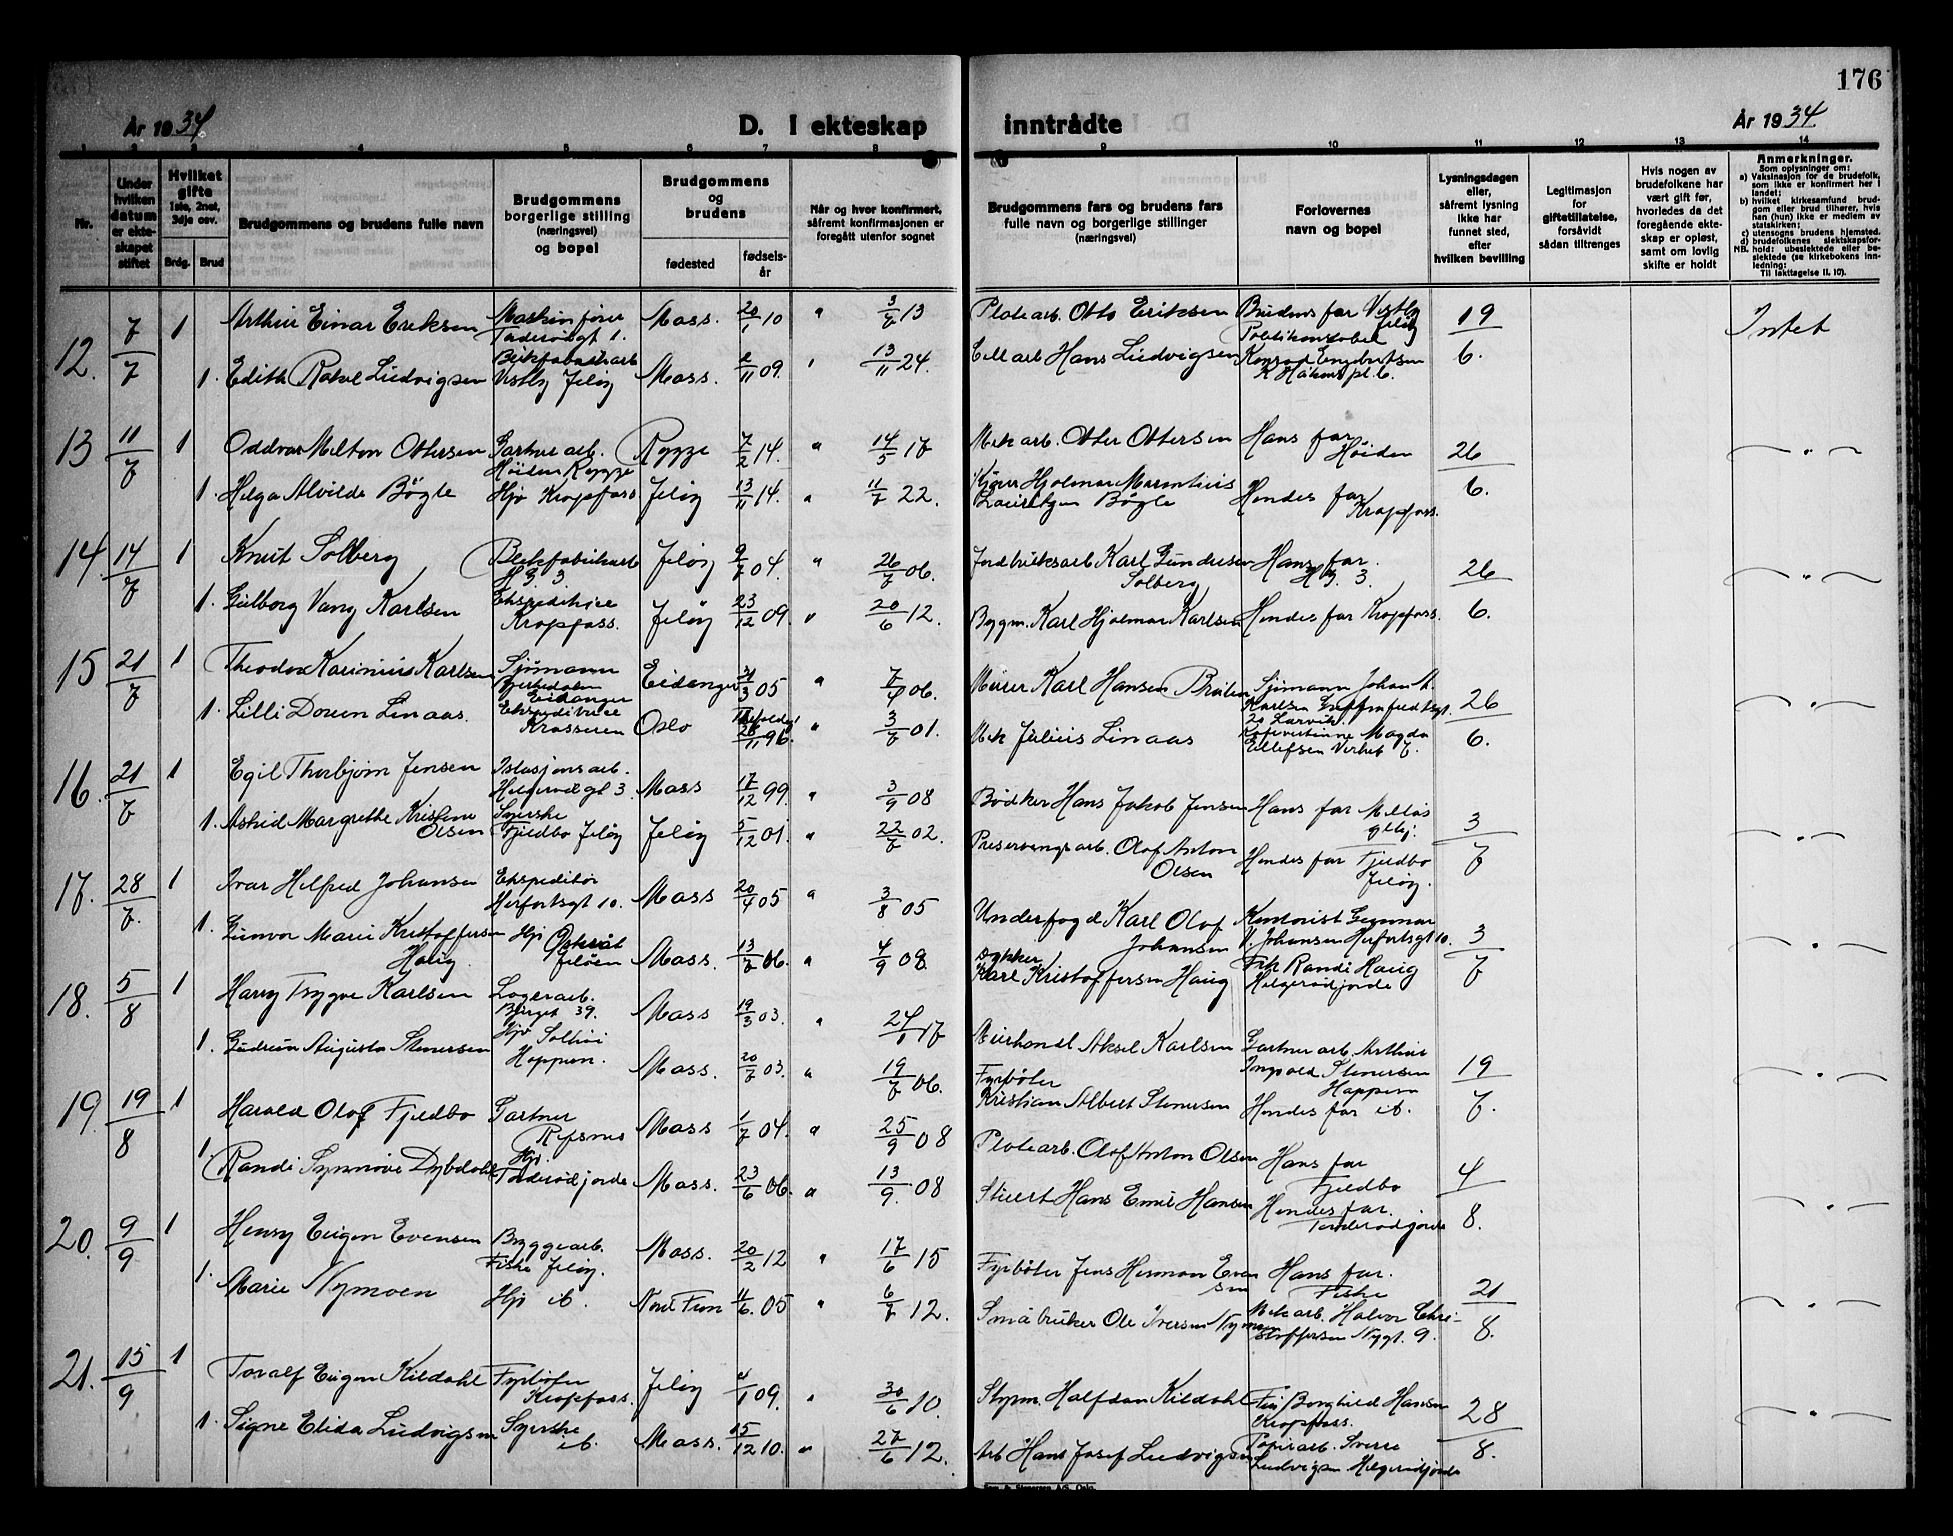 176
År 1934
D. I ekteskap inntrådte
År 1934
1 2 3 4 5 6 7 8 9 10 11 12 13 14
Nr.
Under hvilken datum er ekteskapet stiftet
Hvilket gifte 1ste, 2net, 3dje osv.
Brdg. Brud
Brudgommens og brudens fulle navn
Brudgommens borgerlige stilling (næringsvei) og bopel
Brudgommens og brudens
fødested
fødselsår
Når og hvor konfirmert, såfremt konfirmasjonen er foregått utenfor sognet
Brudgommens fars og brudens fars fulle navn og borgerlige stillinger (næringsvei)
Forlovernes navn og bopel
Lysningsdagen eller, såfremt lysning ikke har funnet sted, efter hvilken bevilling
Legitimasjon for giftetillatelse, forsåvidt sådan tiltrenges
Hvis nogen av brudefolkene har vært gift før, hvorledes da det foregående ekteskap er opløst, samt om lovlig skifte er holdt
Anmerkninger.
Som oplysning om:
a) Vaksinasjon for de brudefolk, som ikke er konfirmert her i landet;
b) hvilket kirkesamfund brudgom eller brud tilhører, hvis han (hun) ikke er medlem av statskirken;
c) utensogns brudens hjemsted.
d) brudefolkenes slektskapsforhold: ubeslektede eller beslektede (se kirkebokens innledning:
NB. Til Iakttagelse II. 10).
12. 7/7 1 Arthur Einar Eriksen Maskinfører Moss. 20/1 10 " 3/7 13 Platearb. Otto Eriksen Brudens far Vestby Jeløy 19/6. Intet
1. Edith Rakel Ludvigsen Blikfabrikarb Vestby Jeløy Moss. 2/11 09. " 13/11 24. Cellarb Hans Ludvigsen Konrad Engebretsen K Håkons pl. 6.
13 11/7 1 Oddvar Melton Ottersen Gartnerarb. Høiden Rygge Rygge 7/2 14. " 14/5 17 Mek arb. Otter Ottersen Hans far Høiden 26/6. "
1. Helga Alvilde Bøgle Hjv Kropfoss Jeløy 13/11 14. " 11/7 22. Hjalmar Bøgle Hendes far Kropfoss.
14. 14/7 1 Knut Solberg Blikfabrikarb H.G. 3. Jeløy 9/7 04. " 26/7 06. Jordbruksarb Karl Gundersen Solberg Hans far. H.G. 3. 26/6. "
1. Gulborg Vang Karlsen Ekspeditrice Kropfoss. Jeløy 23/12 09. " 20/6 12. Byggm. Karl Hjalmar Karlsen Hendes far Kropfoss.
15 21/7 1 Theodor Karinius Karlsen Sjømann Eidanger Eidanger 31/3 05 " 7/4 06. Murer Karl Hansen Sjømann Johan Karlsen 20 Larvik. 26/6. "
1. Lilli Doreen Linaas. Ekspeditrice Krosseren Oslo 28/11 96. " 3/7 01. Mek Julius Linaas Magda Ellefsen Verket 7.
16. 21/7 1 Egil Thorbjørn Jensen Stasjonsarb. Helgerødgt 3. Moss 17/12 99. " 3/9 08 Bødker Hans Jakob Jensen Hans far 3/7 "
1. Astrid Margrethe Kristine Olsen Syerske Fjeldbo Jeløy Jeløy 5/12 01. " 22/7 02. Preserveringsarb. Olof Anton Olsen Hendes far Fjeldbo Jeløy.
17. 28/7. 1 Ivar Helfred Johansen Ekspeditør Herfortsgt 10. Moss 20/4 05 " 3/8 05 Underfogd Karl Olof Johansen Kontorist Gunnar V. Johansen Herfortsgt 10. 3/7 "
1. Gunvor Marie Kristoffersen Haug Hjv Østeråt Jeløen Moss. 13/7 06. " 4/9 08. Dykker Karl Kristoffersen Haug Frk Randi Haug Helgerødjorde
18. 5/8 1 Harry Trygve Karlsen Lagerarb. Berget 39. Moss 19/3 03. " 24/1 17 Aksel Karlsen Gartner arb. Arthur Ingvald Stenersen Happern 19/7. "
1. Gudrun Augusta Stenersen Hjv Solhøi Happern. Moss. 20/7 03. " 19/7 06. Fyrbøter Kristian Albert Stenersen Hendes far ib.
19. 19/8 1 Harald Olof Fjeldbo Gartner Refsnes Moss 1/7 04. " 25/9 08 Platearb. Olof Anton Olsen Hans far Fjeldbo 4/8. "
1. Randi Synnøve Dybdahl Hjv. Tronderødjorde Moss. 23/6 06. " 13/9. 08 Stuert Hans Emil Hansen Hendes far.
20. 9/9 1 Henry Eugen Evensen Byggearb. Fiske Jeløy. Moss. 20/2 12 " 17/6 15 Fyrbøter Jens Herman Evensen Hans far. Fiske 21/8. "
1. Marie Nymoen Hjv ib. Nord Fron 11/6. 05 " 6/7 12. Småbruker Ole Iversen Nymoen Mek arb. Halvor Christoffersen Nygt. 9.
21. 15/9 1 Toralf Eugen Kildahl Fyrbøter Kropfoss. Jeløy 4/1 09. " 30/6 10. Styrm. Halfdan Kildahl Fru Borghild Hansen Kropfoss. 28/8. "
1. Signe Elida Ludvigsen Syerske ib. Moss. 15/12 10. " 27/6 12. Arb Hans Josef Ludvigsen Papirarb. Sverre Ludvigsen Helgerødjorde